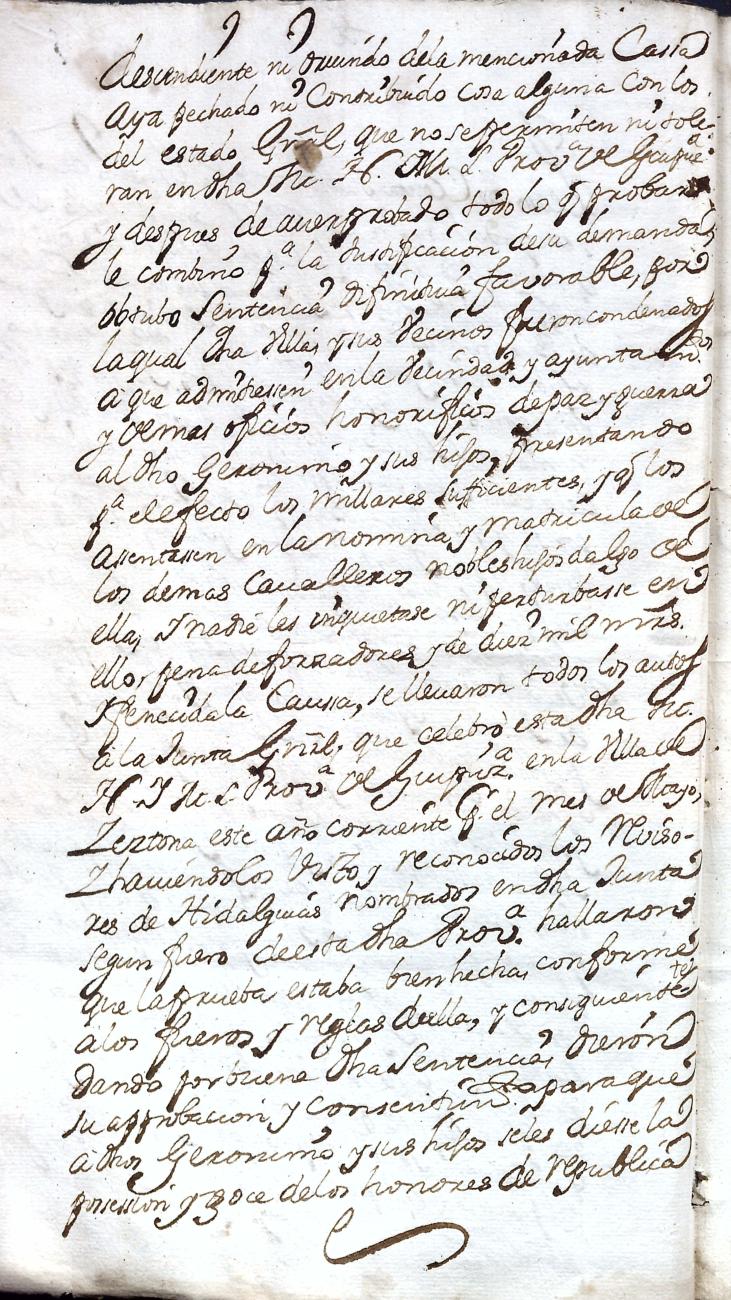 descendiente ni oriundo dela mencionada Cassa
Aya pechado ni Contribuido cosa alguna con los
del estado Gnrâl, que no se permiten ni tole-
ran en dha M. N. M. L. Prov.ª de Guipuz.ª
y despues de aver probado todo lo q̃ probar
le combino p.ª la Justificación desu demanda,
obtubo Sentencia difinitiua favorable, por
laqual dha Villa, y sus Vecinos fueron condenados
a que admitiessen en la Vecindad, y ayuntam.tos
y demas oficios honorificos de paz y guerra
al dho Geronimo y sus hijos, presentando
p.ª el efecto los millares sufficientes, y q̃ los
assentassen en la nomina y matricula de
los demas Cavalleros nobles hijos dalgo de
ella, I nadie les inquietase ni perturbasse en
ello, pena de forzadores y de diez mil mrs.
I fenecida la Caussa, se lleuaron todos los autos
a la Junta Gnrâl, que celebrò esta dha M.
N. I M. L. Prov.ª de Guipuz.ª en la Villa de
Zeztona este año corriente p.r el mes de Mayo,
I hauiendolos Visto y reconocidos los Reviso-
res de Hidalguias nombrados en dha Junta
segun fuero de esta dha Prov.ª hallaron
que la prueba estaba bien hecha, conforme
a los fueros y reglas de ella, y consiguiente.te
dando por buena dha Sentencia, dieron
su aprobacion y consentim.to para que
a dhos Geronimo y sus hijos seles diesse la
possession y goce delos honores de republica